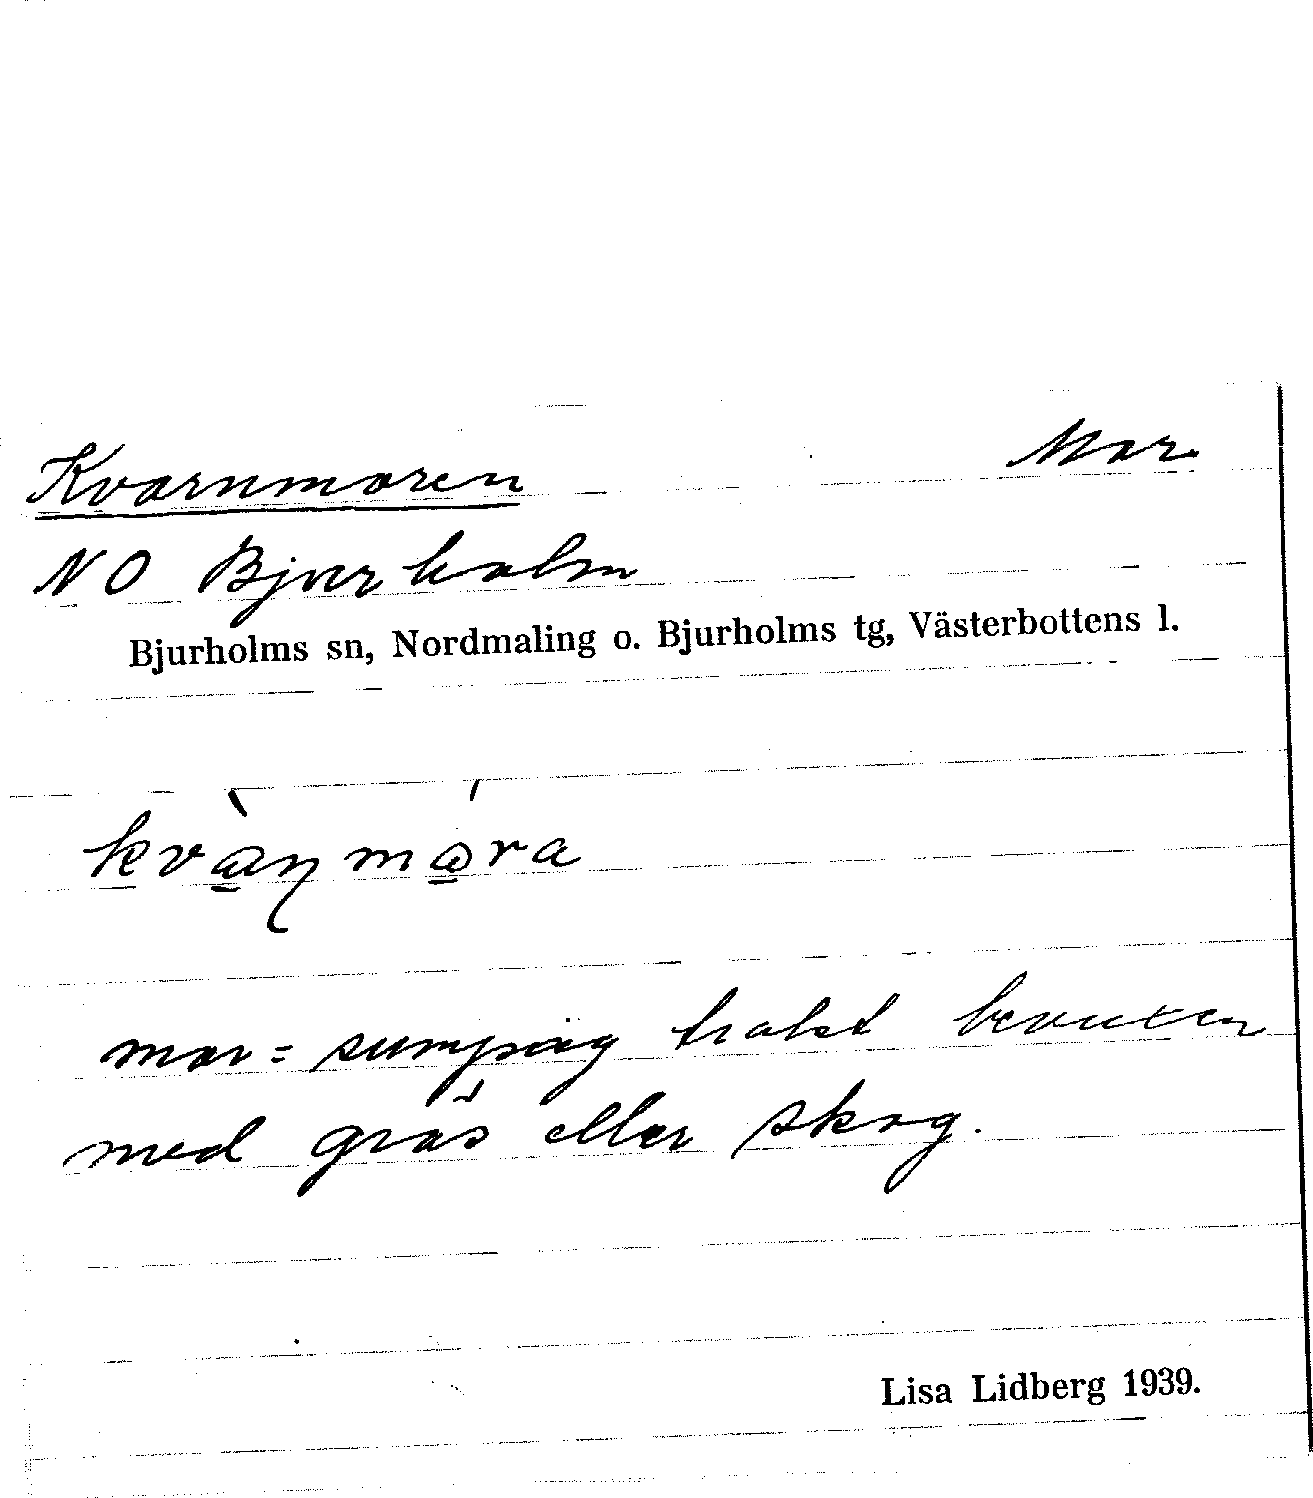 Kvarnmaren Mar.
NO Bjurholm
Bjurholms sn, Nordmaling o. Bjurholms tg, Västerbottens l.
kvàṇmára
mar = sumpig trakt bevuxen
med gräs eller skog.
Lisa Lidberg 1939.